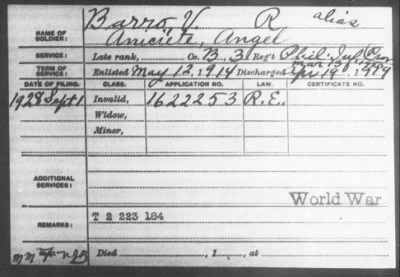 Barro, V. R alias
NAME OF SOLDIER: Anicete, Angel
SERVICE: Late rank, Co. B. 3 Reg't Phil. Inf. Prov
TERM OF SERVICE: Enlisted May 12, 1914 Discharged Apr 19 1919
DATE OF FILING. CLASS. APPLICATION NO. LAW. CERTIFICATE NO.
1928 Sept 1 Invalid, 1622253 R.E.
Widow,
Minor,
ADDITIONAL SERVICES:
World War
REMARKS: T 2 223 184
Died , 1 , at